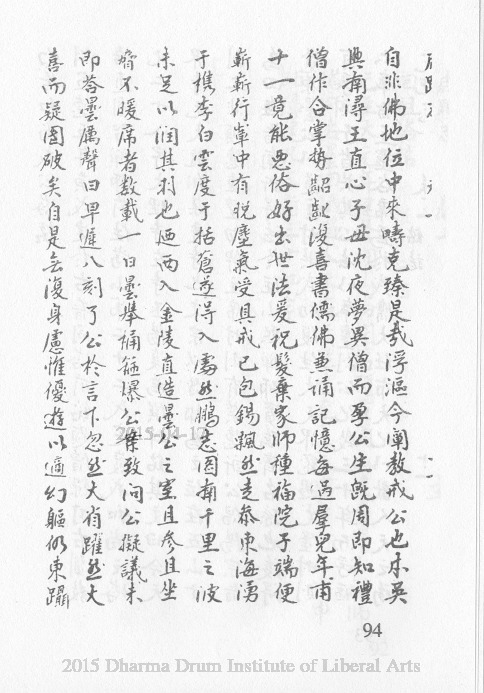 自非佛地位中來疇克臻是哉浮漚今闡教戒公也本吳
興南潯王直心子丑沈夜夢異僧而孕公生旣周即知禮
僧作合掌勢齠齔復喜書儒佛兼誦記憶每過羣兒年甫
十一竟能惡俗好出世法爰祝髮棄家師種福院子端便
嶄嶄行輩中有脫塵氣受具戒已包錫飄然走泰東海湧
于檇李白雲度于括蒼遂得入處然鵬志圖南千里之波
未足以潤其羽也迺西入金陵直造曇公之室且參且坐
脅不暖席者数載一日曇舉誦雜爆公案致問公擬議未
即答曇厲聲曰早遲八刻了公於言下忽然大省躍然大
喜而疑團破矣自是无復身慮惟優遊以適幻軀仍東躡
94
2015 Dharma Drum Institute of Liberal Arts